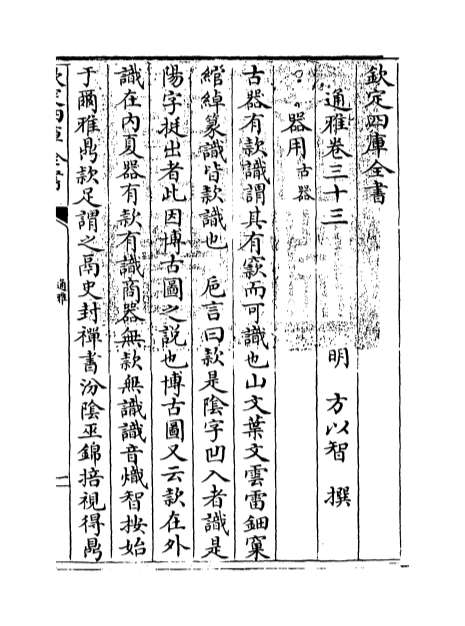 欽定四庫全書
通雅卷三十三
明 方以智 撰
器用古器
古器有款識謂其有窽而可識也山文葉文雲雷鈿窠
綰綽篆識皆款識也 巵言曰款是陰字凹入者識是
陽字挺出者此因博古圖之説也博古圖又云款在外
識在内夏器有款有識商器無款無識識音熾智按始
于爾雅鼎款足謂之鬲史封禪書汾陰巫錦掊視得鼎
欽定四庫全書
通雅
一